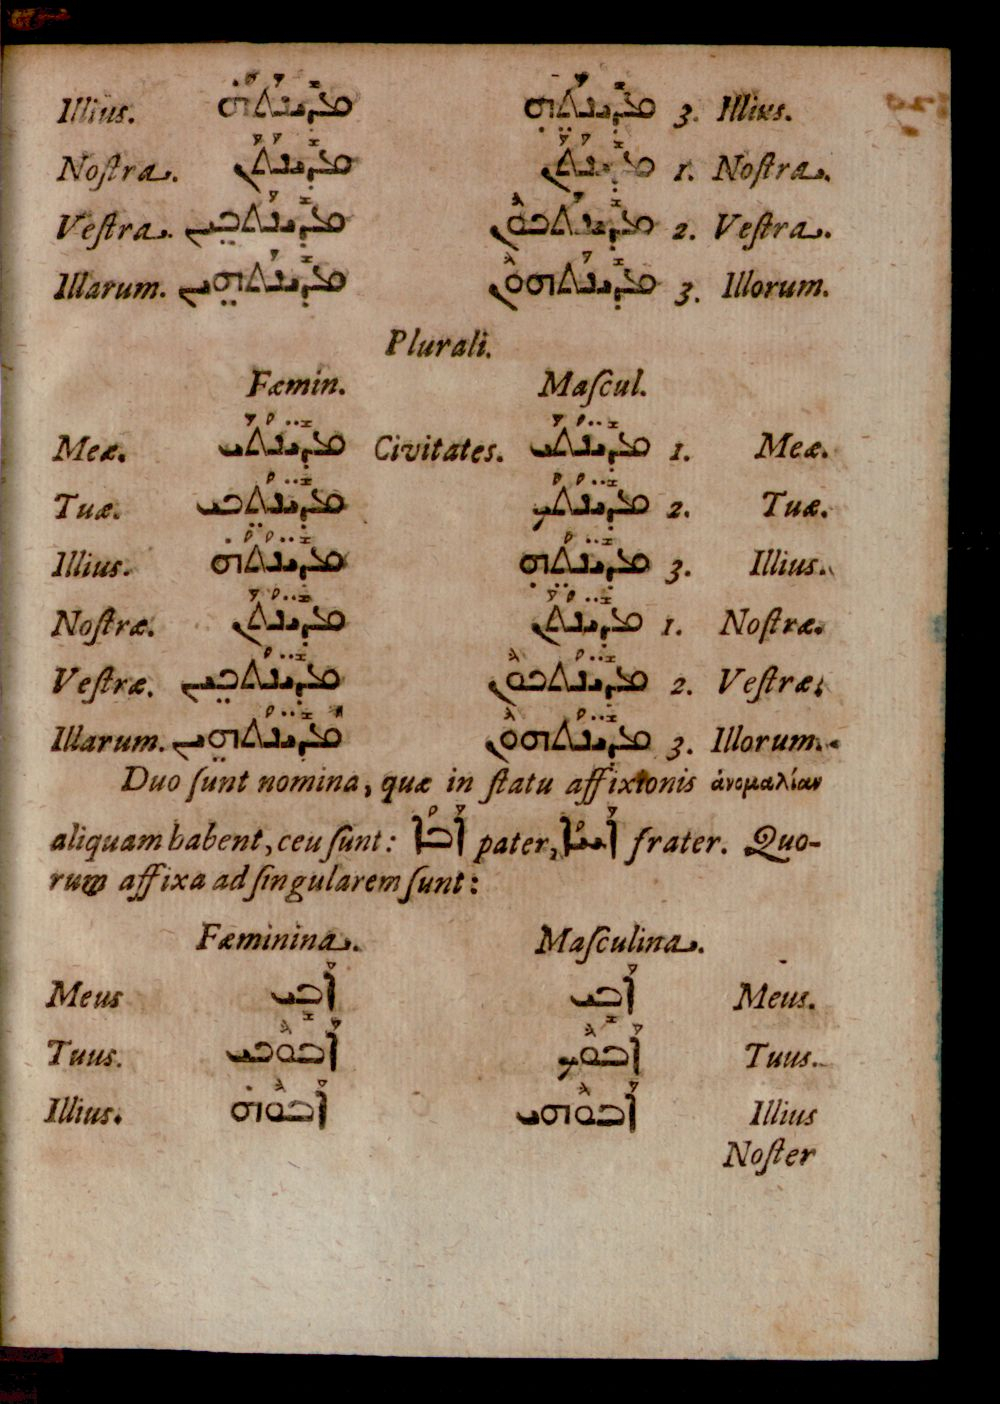 Illius. ܡܕܝܢܬܗ ܡܕܝܢܬܗ 3. Illius.
Nostra. ܡܕܝܢܬܢ ܡܕܝܢܬܢ 1. Nostra.
Vestra. ܡܕܝܢܬܟܝܢ ܡܕܝܢܬܟܘܢ 2. Vestra.
Illarum. ܡܕܝܢܬܗܝܢ ܡܕܝܢܬܗܘܢ 3. Illorum.
Plurali.
Fæmin. Mascul.
Meæ. ܡܕܝܢܬܝ Civitates. ܡܕܝܢܬܝ 1. Meæ.
Tuæ. ܡܕܝܢܬܟܝ ܡܕܝܢܬܟ 2. Tuæ.
Illius. ܡܕܝܢܬܗ ܡܕܝܢܬܗ 3. Illius.
Nostræ. ܡܕܝܢܬܢ ܡܕܝܢܬܢ 1. Nostræ.
Vestræ. ܡܕܝܢܬܟܝܢ ܡܕܝܢܬܟܘܢ 2. Vestræ.
Illarum. ܡܕܝܢܬܗܝܢ ܡܕܝܢܬܗܘܢ 3. Illorum.
Duo sunt nomina, quæ in statu affixionis ἀνομαλίαν
aliquam habent, ceu sunt: ܐܒܐ pater, ܐܚܐ frater. Quo-
rum affixa ad singularem sunt:
Fæminina. Masculina.
Meus ܐܒܝ ܐܒܝ Meus.
Tuus. ܐܒܘܟܝ ܐܒܘܟ Tuus.
Illius. ܐܒܘܗ ܐܒܘܗܝ Illius
Noster